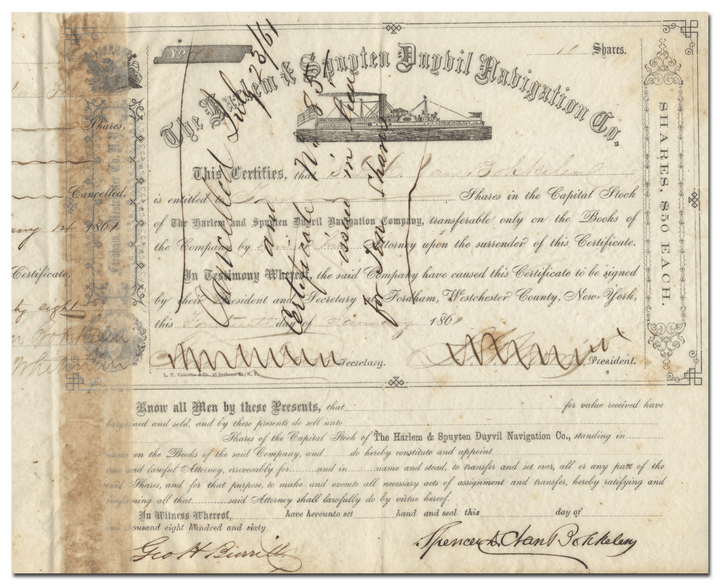 No.
10 Shares.
The Harlem & Spuyten Duyvil Navigation Co.
This Certifies, that
is entitled to Shares in the Capital Stock
of The Harlem and Spuyten Duyvil Navigation Company, transferable only on the Books of
the Company by Attorney upon the surrender of this Certificate.
In Testimony Whereof, the said Company have caused this Certificate to be signed
by their President and Secretary at Fordham, Westchester County, New-York,
this day of January 186
Secretary. President.
SHARES, $50 EACH.
Cancelled July 23/61
and
Certificate No 85
issued in lieu
for Ten Shares
Shares.
Cancelled.
Certificate,
eight
Know all Men by these Presents, that for value received have
and sold, and by these presents do sell unto
Shares of the Capital Stock of The Harlem & Spuyten Duyvil Navigation Co., standing in
on the Books of the said Company, and do hereby constitute and appoint
and lawful Attorney, irrevocably for and in name and stead, to transfer and set over, all or any part of the
Shares, and for that purpose, to make and execute all necessary acts of assignment and transfer, hereby ratifying and
all that said Attorney shall lawfully do by virtue hereof.
In Witness Whereof, have hereunto set hand and seal this day of
thousand eight hundred and sixty
Geo H Burritt
Spencer D. Van Bokkelen